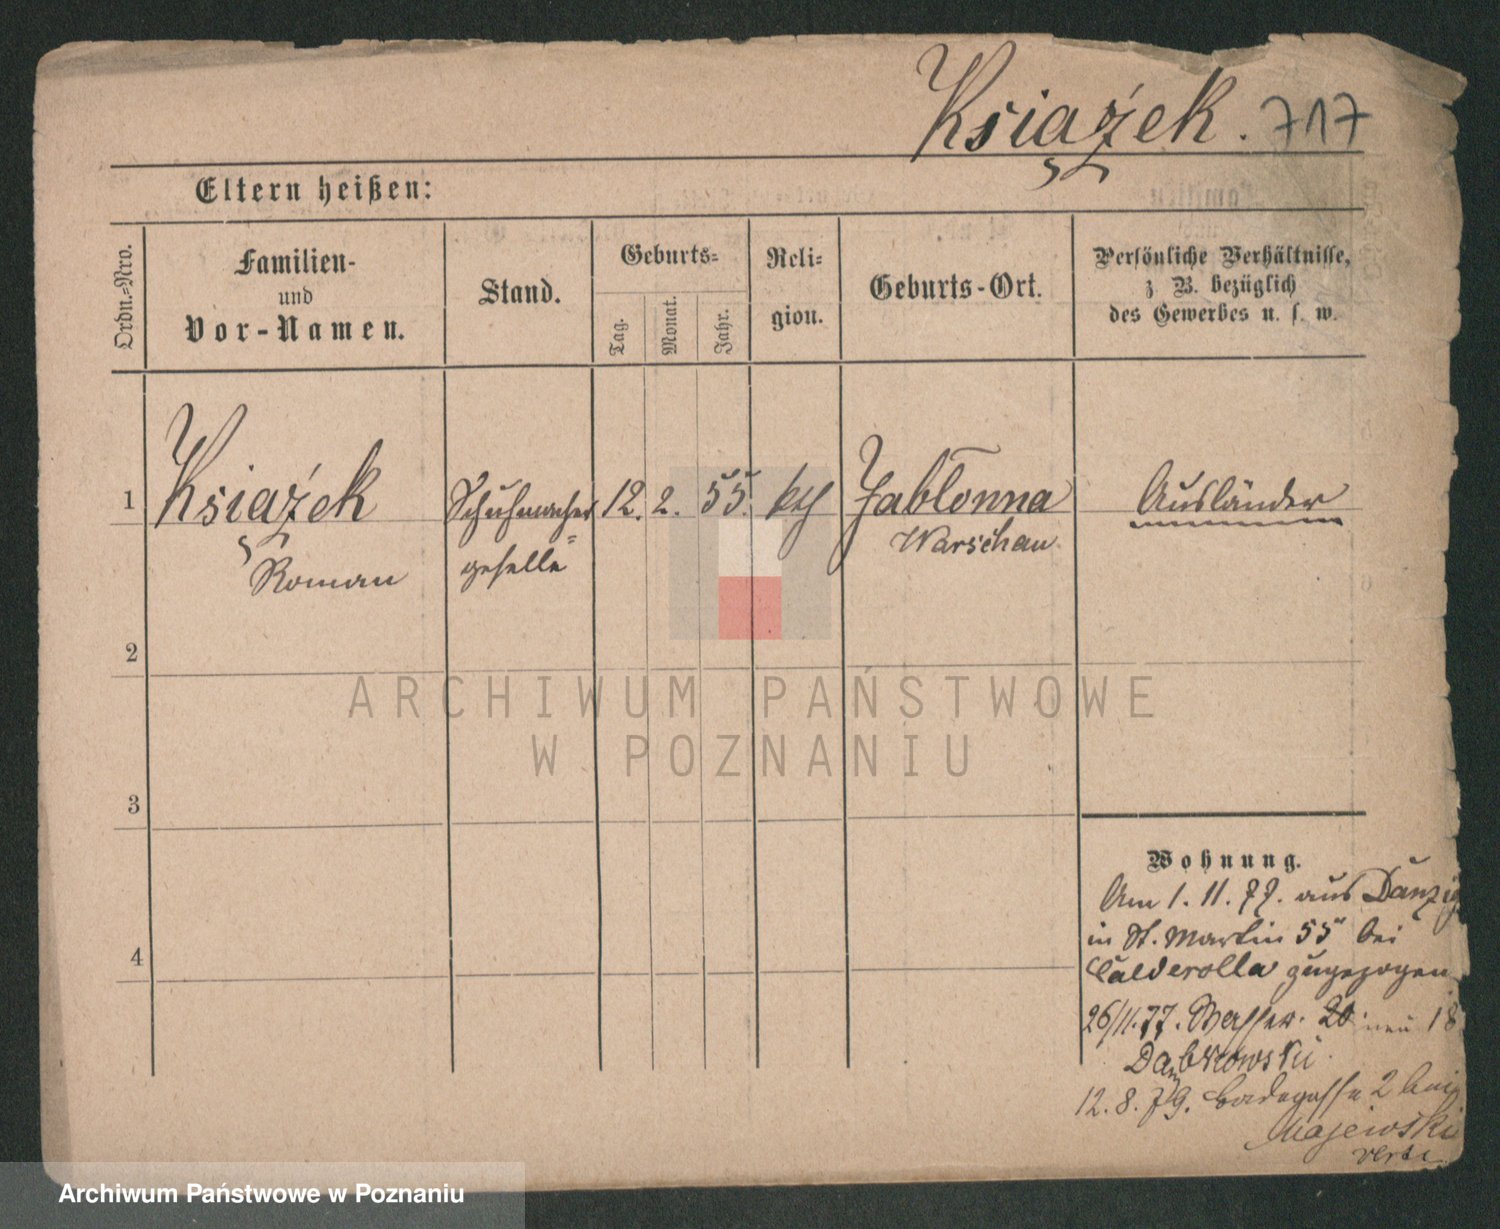 Książek. 717
Eltern heißen:
Ordn.=Nro.
Familien-
und
Vor-Namen.
Stand.
Geburts=
Tag.
Monat.
Jahr.
Reli=
gion.
Geburts-Ort.
Persönliche Verhältnisse,
z B. bezüglich
des Gewerbes u. s. w.
1 Książek Schuhmacher 12. 2. 55. kth Jabłonna Ausländer
Roman geselle Warschau
2
3
4
Wohnung.
Am 1. 11. 77. aus Danzig
in St. Martin 55 bei
Calderolla zugezogen
26/11.77. Wasser. 20 neu 18
Dąbrowski.
12. 8. 79. Badegasse 2 bei
Majewski
verte
ARCHIWUM PAŃSTWOWE
W POZNANIU
Archiwum Państwowe w Poznaniu